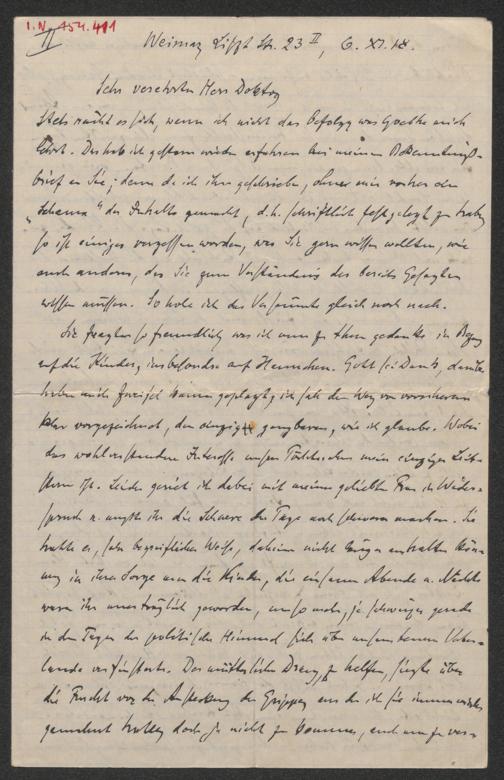 I.N. 154.411
II
Weimar Liszt Str. 23 II, 6. XI. 18.
Sehr verehrter Herr Doktor
Stets rächt es sich, wenn ich nicht das befolge, was Goethe mich
lehrt. Das hab ich gestern wieder erfahren bei meinem
brief an Sie; denn da ich ihn geschrieben, ohne mir vorher ein
"Schema" des Inhalts gemacht, d.h. schriftlich festgelegt zu haben
so ist einiges vergessen worden, was Sie gern wissen wollten, wie
auch anderes, das Sie zum Verständnis des bereits Gesagten
wissen müssen. So hole ich das Versäumte gleich noch nach.
Sie fragten so freundlich was ich nun zu thun gedenke in Bezug
auf die Kinder, insbesondre auf Hannchen. Gott sei Dank, darüber
haben mich Zweifel kaum geplagt; ich sah den Weg von vornherein
klar vorgezeichnet, den einzig gangbaren, wie ich glaube. Wobei
das wohlverstandene Interesse unsres Töchterchens mein einziger Leit-
stern ist. Leider geriet ich dabei mit meiner geliebten Frau in Wider-
spruch u. mußte ihr die Schwere der Tage noch schwerer machen. Sie
hatte es, sehr begreiflicher Weise, daheim nicht länger aushalten kön-
nen in ihrer Sorge um die Kinder, die einsamen Abende u. Nächte
waren ihr unerträglich geworden, umso mehr, je schwärzer gerade
in den Tagen der politische Himmel sich über unserem Vater-
lande verfinsterte. Der mütterliche Drang zu helfen, siegte über
die Furcht vor der Ansteckung der Grippe, vor der ich sie immer wieder
gewarnt hatte, doch ja nicht zu kommen, auch um ja